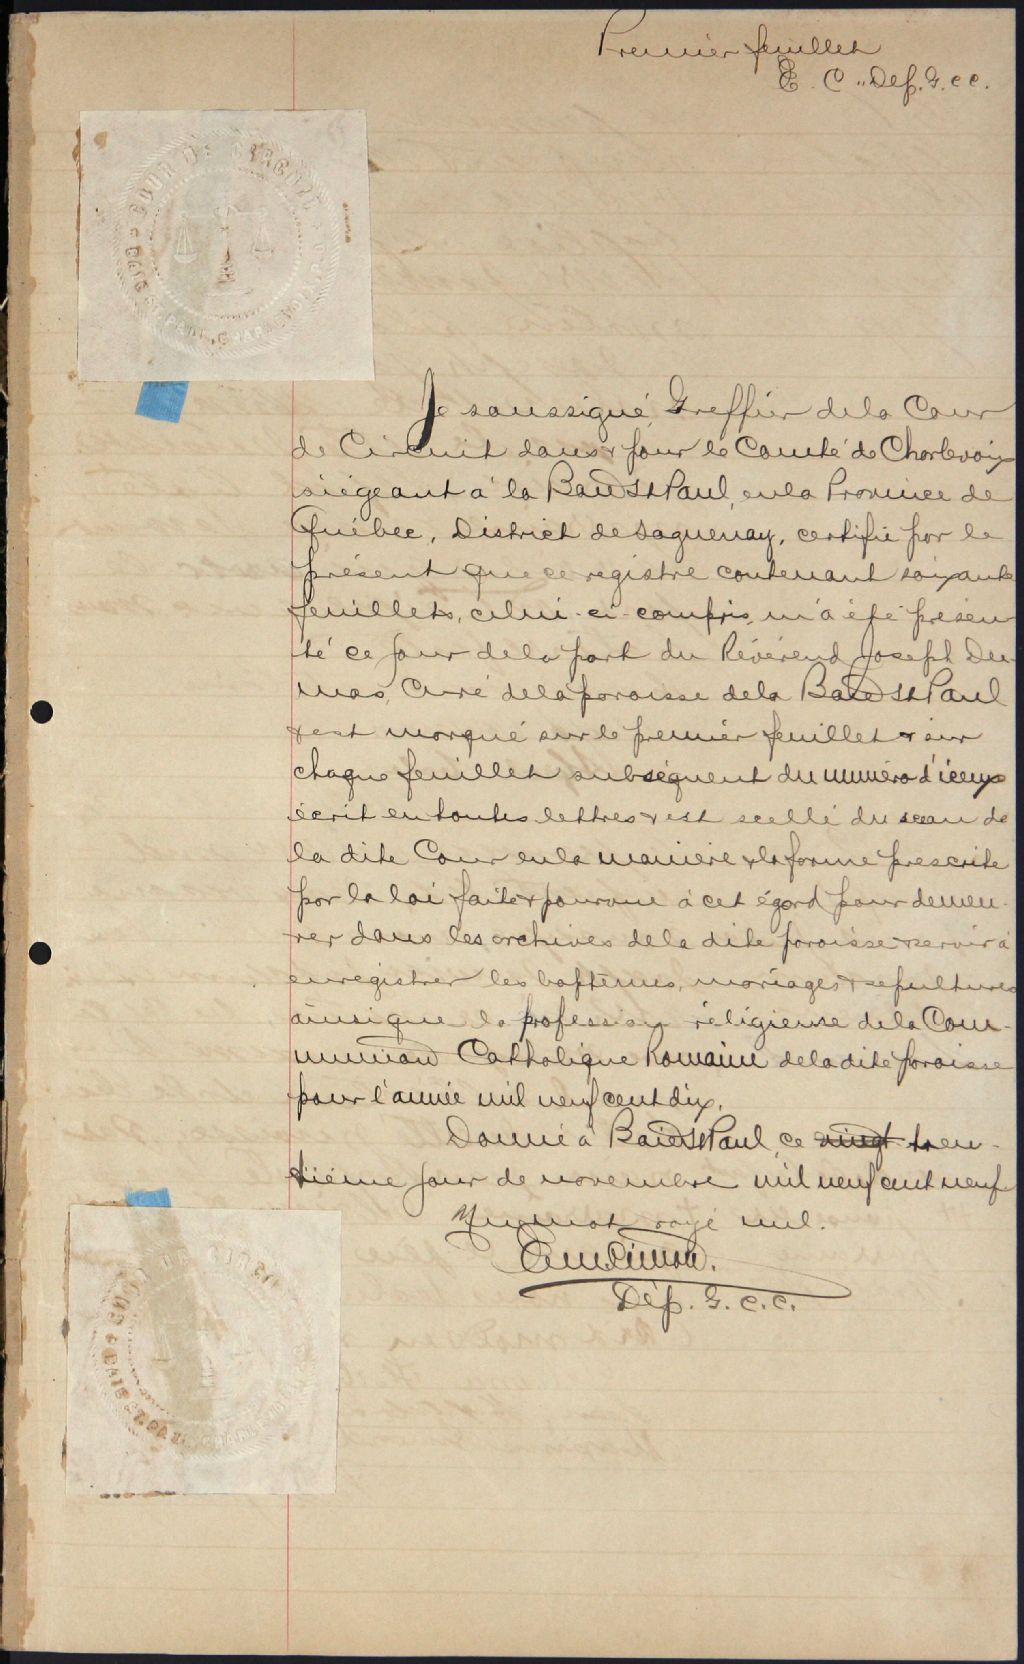 Premier feuillet
E. C. Dép. G. C C.
COUR DE CIRCUIT
BAIE ST PAUL
Je soussigné, Greffier de la Cour
de Circuit dans & pour le Comté de Charlevoix
siégeant à la Baie St Paul, en la Province de
Québec, District de Saguenay, certifie par le
présent que ce registre contenant soixante
feuillets, celui-ci compris, m'a été présen
té ce jour de la part du Révérend Joseph Du-
mas, Curé de la paroisse de la Baie St Paul
& est marqué sur le premier feuillet & sur
chaque feuillet subséquent du numéro d'iceux
écrit en toutes lettres & est scellé du sceau de
la dite Cour en la manière & la forme prescrite
par la loi faite & pourvue à cet égard pour demeu-
rer dans les archives de la dite paroisse & servir à
enregistrer les baptêmes, mariages & sépultures
ainsi que la profession réligieuse de la Com-
munion Catholique Romaine de la dite paroisse
pour l'année mil neuf cent dix.
Donné à Baie St Paul, ce vingt tren-
tième jour de novembre mil neuf cent neuf
Un mot rayé nul.
Dép. G. C. C.